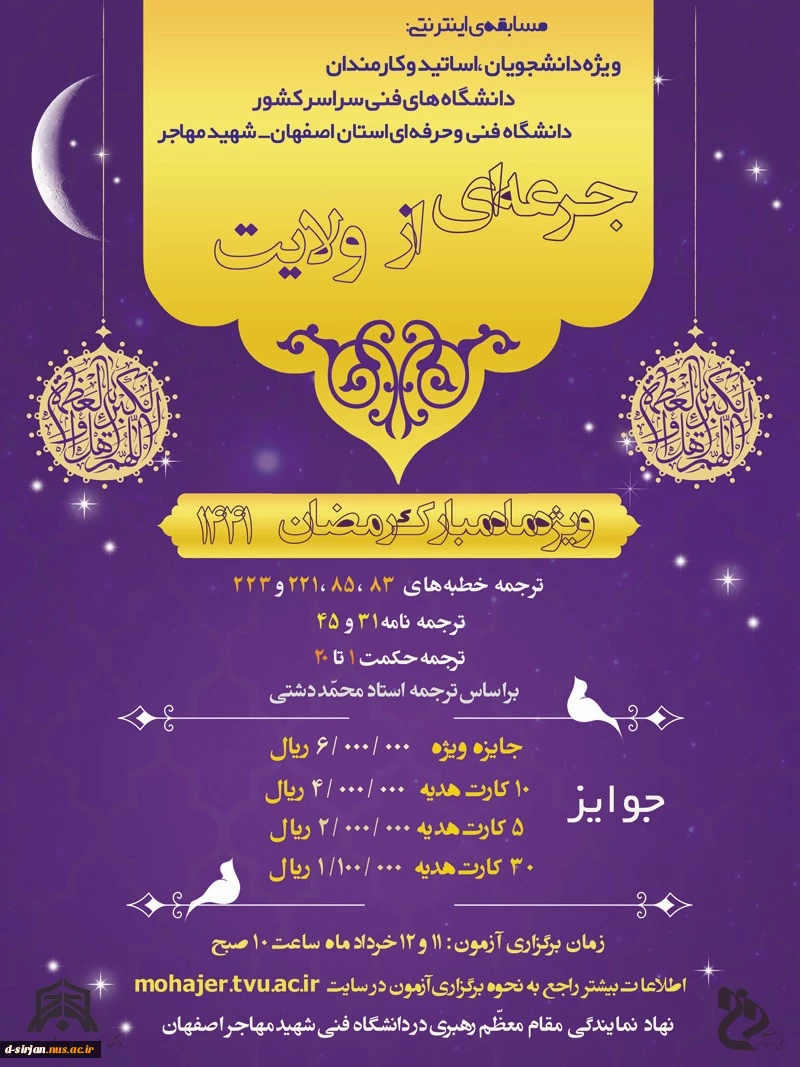 مسابقه‌ی اینترنتی:
ویژه دانشجویان ،اساتید و کارمندان
دانشگاه های فنی سراسر کشور
دانشگاه فنی و حرفه ای استان اصفهان_ شهید مهاجر
جرعه‌ای از ولایت
اللهم اهل الکبریاء والعظمة
اللهم اهل الکبریاء والعظمة
ویژه ماه مبارک رمضان ۱۴۴۱
ترجمه خطبه های ۸۳ ،۸۵ ،۲۲۱ و ۲۲۳
ترجمه نامه ۳۱ و ۴۵
ترجمه حکمت ۱ تا ۲۰
براساس ترجمه استاد محمّد دشتی
جوایز
جایزه ویژه ۶/۰۰۰/۰۰۰ ریال
۱۰ کارت هدیه ۴/۰۰۰/۰۰۰ ریال
۵ کارت هدیه ۲/۰۰۰/۰۰۰ ریال
۳۰ کارت هدیه ۱/۱۰۰/۰۰۰ ریال
زمان برگزاری آزمون: ۱۱ و ۱۲ خرداد ماه ساعت ۱۰ صبح
اطلاعات بیشتر راجع به نحوه برگزاری آزمون در سایت mohajer.tvu.ac.ir
نهاد نمایندگی مقام معظّم رهبری در دانشگاه فنی شهید مهاجر اصفهان
d-sirjan.nus.ac.ir